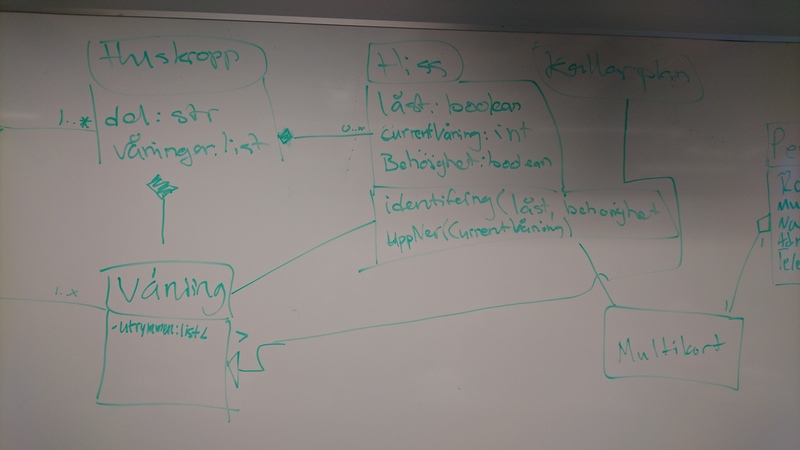 Huskropp
1..*
del: str
våningar: list
Hiss
0..m
låst: boolean
currentVåning: int
Behörighet: boolean
identifeing(låst, behorighet
UppNer(Currentvåning)
Källarplan
1..*
Våning
-utrymmen: list<
>
Multikort
1
1
Pe
Mu
Na
tele